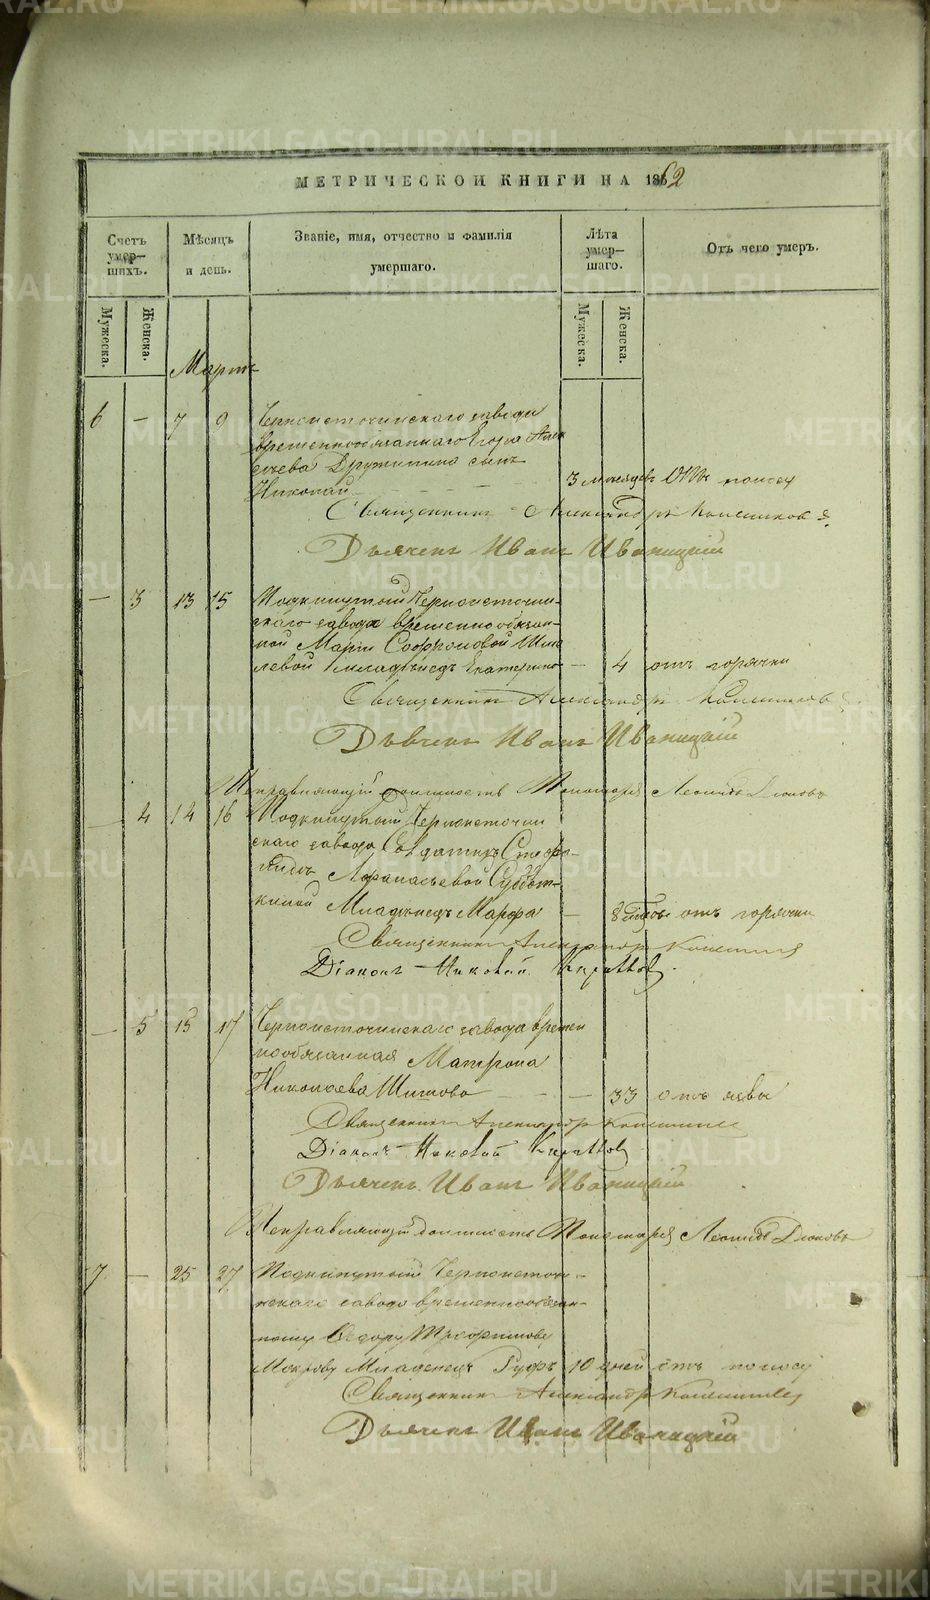 МЕТРИЧЕСКОЙ КНИГИ НА 1862
Счетъ умер—шихъ.
Мѣсяцъ и день.
Званіе, имя, отчество и фамилія умершаго.
Лѣта умер—шаго.
Отъ чего умеръ.
Мужеска.
Женска.
Мужеска.
Женска.
Мартъ
6 — 7 9 Черноисточинскаго завода
временнообязаннаго Егора Алек
сѣева Дружинина сынъ
Николай — 3 мѣсяцевъ Отъ поносу
Священникъ Александръ
Дьячекъ Иванъ Иваницкій
— 3 13 15 Подкинутый Черноисточин-
скаго завода временнообязан-
ной Маріи Софроновой Шма
левой младенецъ Екатерина — 4 отъ горячки
Священникъ Александръ
Дьячекъ Иванъ Иваницкій
Исправляющій должность Пономаря Леонидъ
— 4 14 16 Подкинутый Черноисточин
скаго завода Солдаткѣ
Афанасьевой Суббот-
киной Младенецъ Марфа — 8 отъ горячки
Священникъ Александръ
Діаконъ Николай
— 5 15 17 Черноисточинскаго завода времен
нообязанная Матрона
Николаева Шитова — 33 отъ язвы
Священникъ Александръ
Діаконъ Николай
Дьячекъ Иванъ Иваницкій
Исправляющій должность Пономаря Леонидъ
7 — 25 27 Подкинутый Черноисточин-
скаго завода временнообязан-
ному Ѳедору Трофимову
Мокрову Младенецъ Руфъ 10 дней отъ поносу
Священникъ Александръ
Дьячекъ Иванъ Иваницкій
METRIKI.GASO-URAL.RU